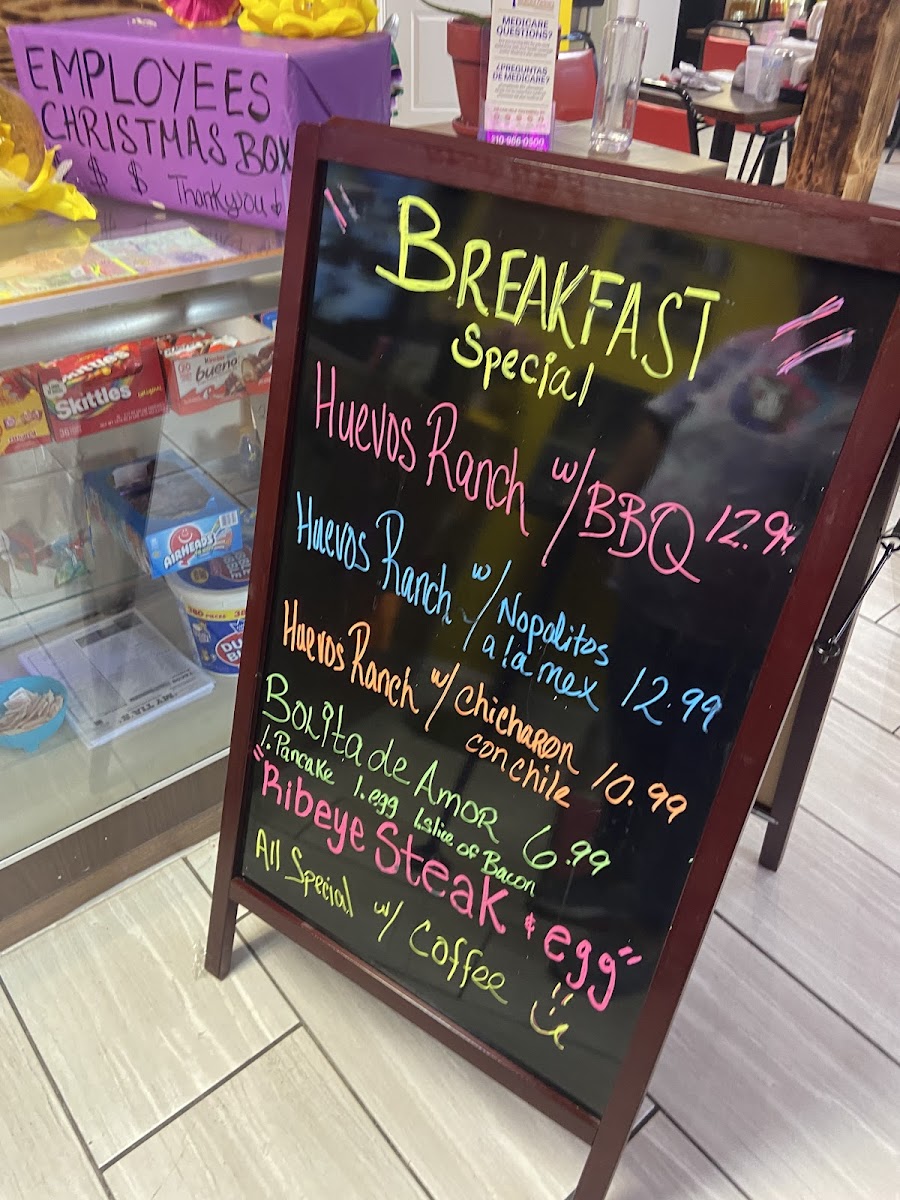 EMPLOYEES
CHRISTMAS BOX
$ $ Thankyou
MEDICARE
QUESTIONS?
¿PREGUNTAS
DE MEDICARE?
BREAKFAST
Special
Huevos Ranch w/ BBQ 12.99
Huevos Ranch w/ Nopalitos
a la mex 12.99
Huevos Ranch w/ Chicharon
con chile 10.99
Bolita de Amor 6.99
1.Pancake 1.egg 1.slice of Bacon
"Ribeye Steak & egg"
All Special w/ Coffee
Skittles
Skittles
kinder
bueno
AIRHEADS
380 PIECES